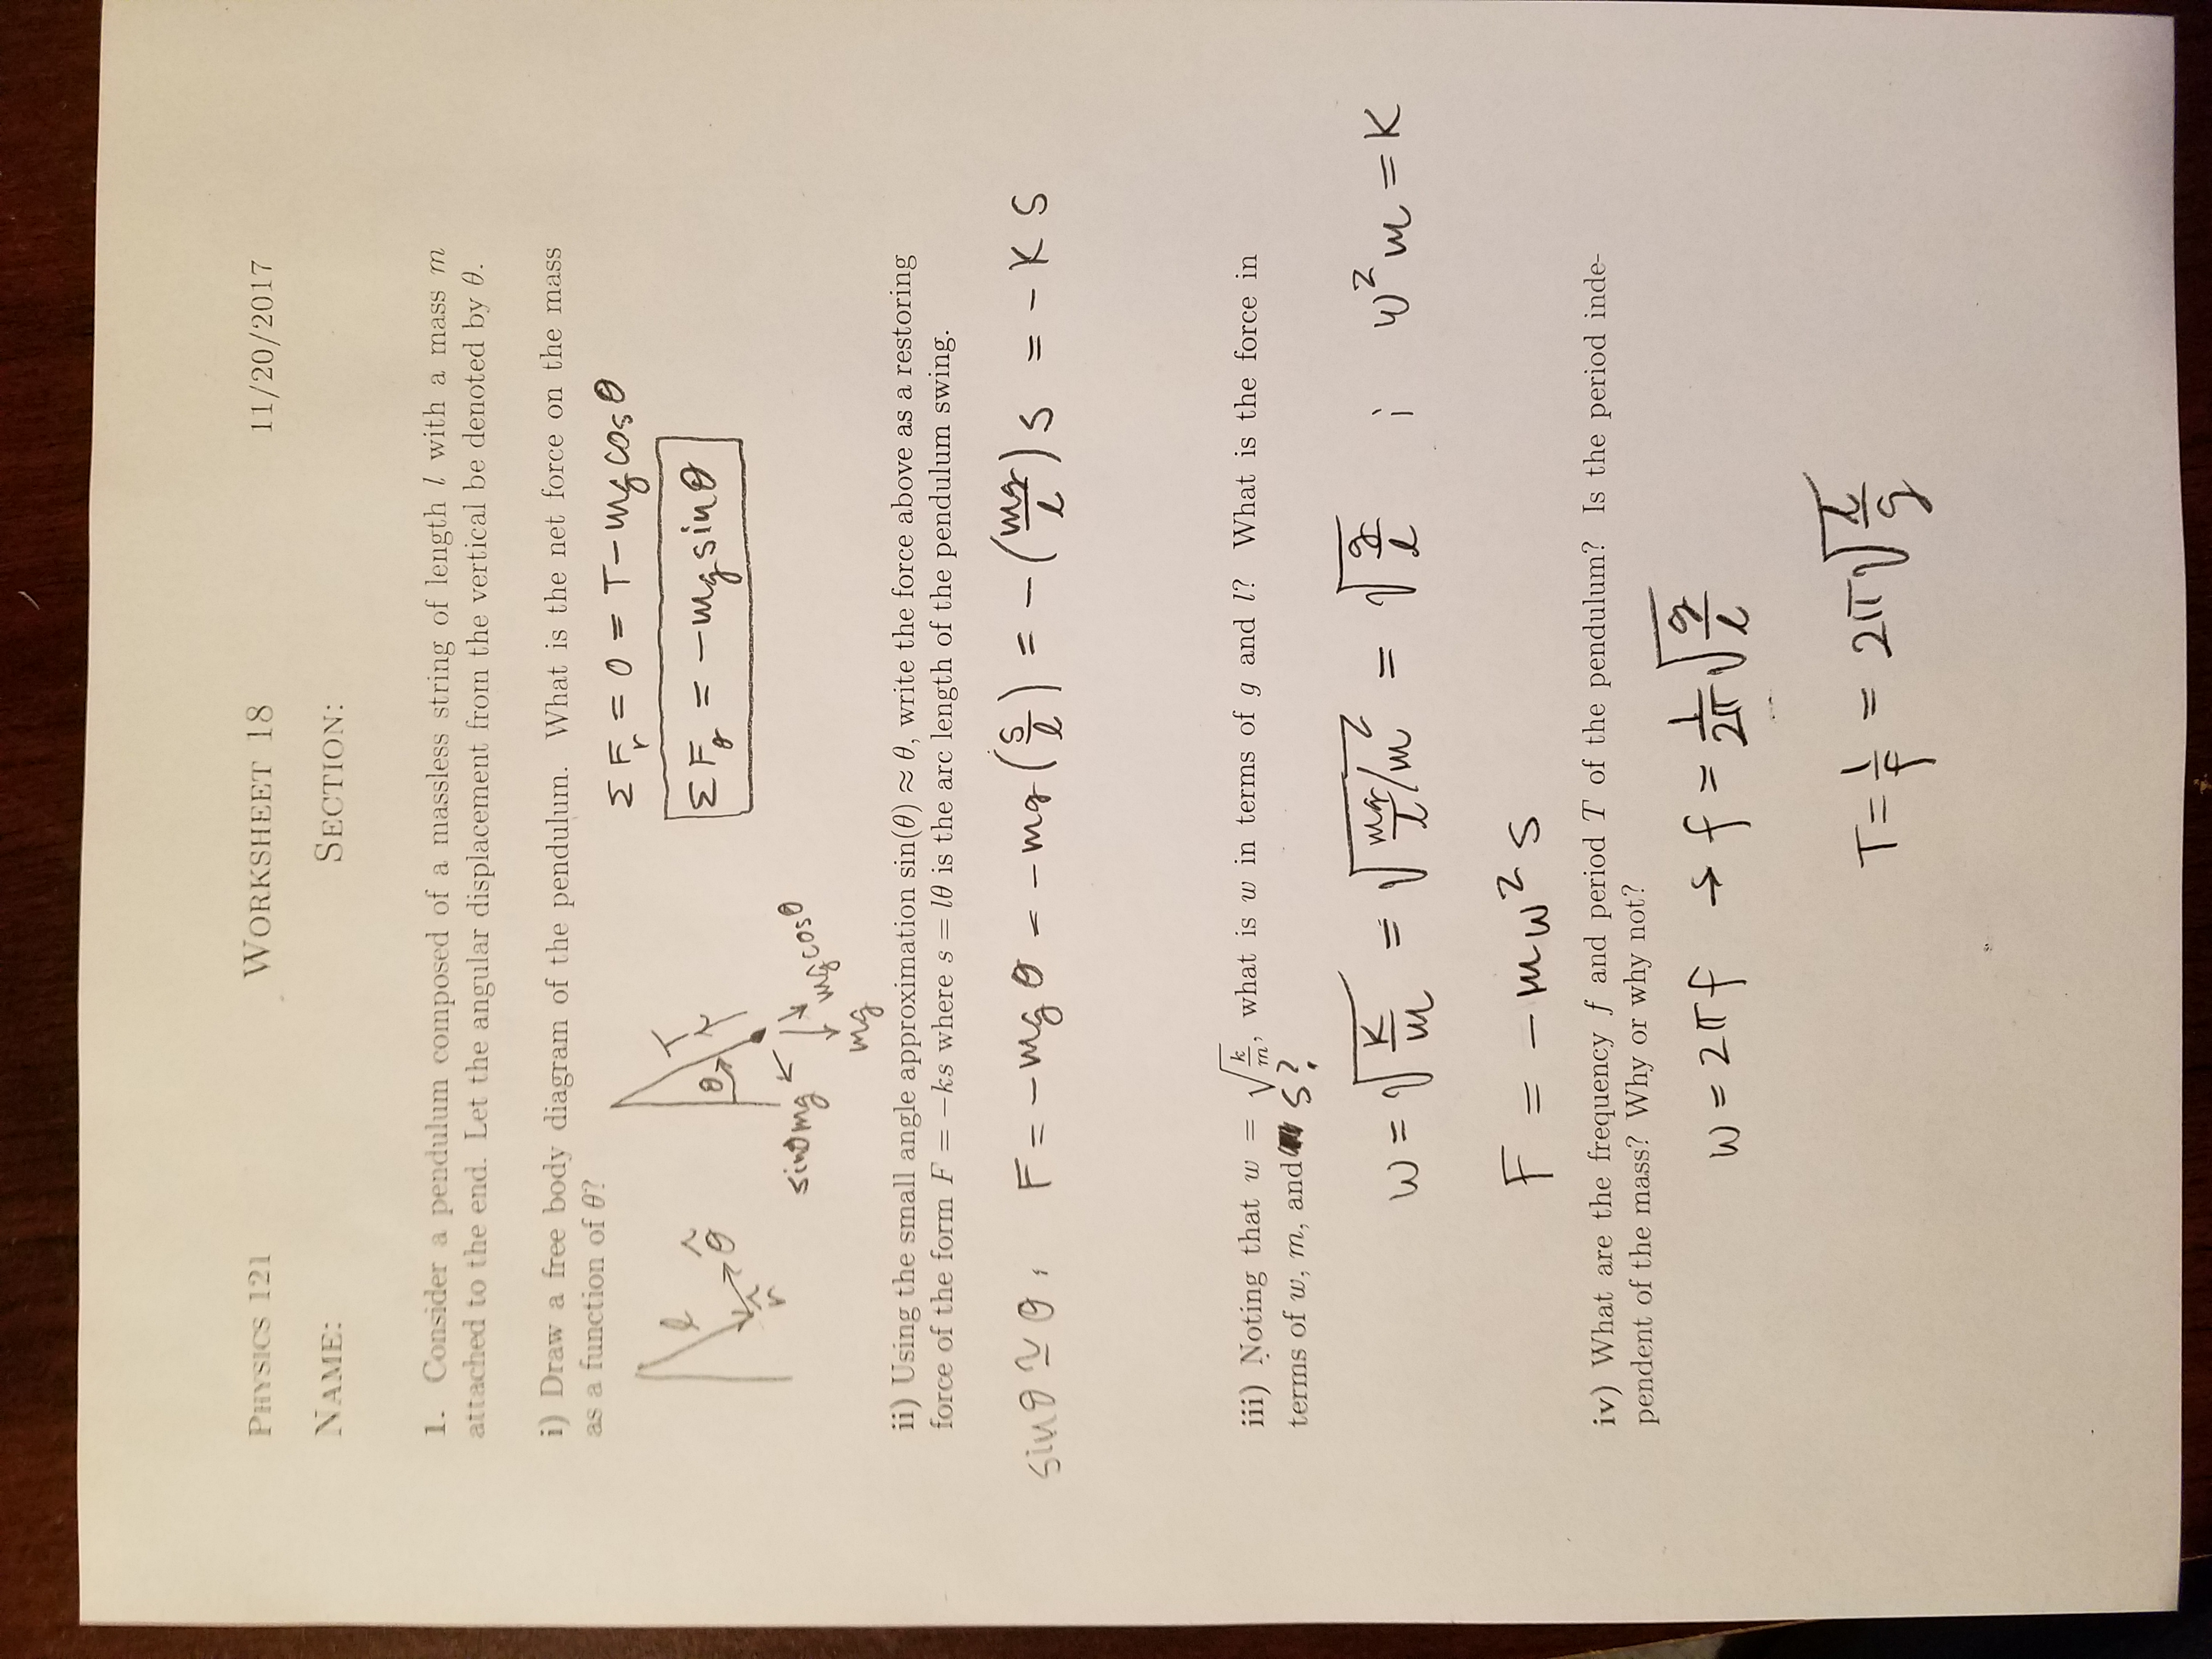 PHYSICS 121 WORKSHEET 18 11/20/2017
NAME: SECTION:
1. Consider a pendulum composed of a massless string of length l with a mass m
attached to the end. Let the angular displacement from the vertical be denoted by θ.
i) Draw a free body diagram of the pendulum. What is the net force on the mass
as a function of θ?
l
θ̂
r̂
θ
T
sinθmg
mg
mgcosθ
ΣF_r = 0 = T - mgcosθ
ΣF_θ = -mgsinθ
ii) Using the small angle approximation sin(θ) ≈ θ, write the force above as a restoring
force of the form F = −ks where s = lθ is the arc length of the pendulum swing.
sinθ ≃ θ, F = -mgθ = -mg(s/l) = -(mg/l)s = -KS
iii) Noting that w = √(k/m), what is w in terms of g and l? What is the force in
terms of w, m, and s?
w = √(K/m) = √(mg/l/m) = √(g/l) ; w²m = K
F = -mw²s
iv) What are the frequency f and period T of the pendulum? Is the period inde-
pendent of the mass? Why or why not?
w = 2πf → f = 1/2π √(g/l)
T = 1/f = 2π√(l/g)